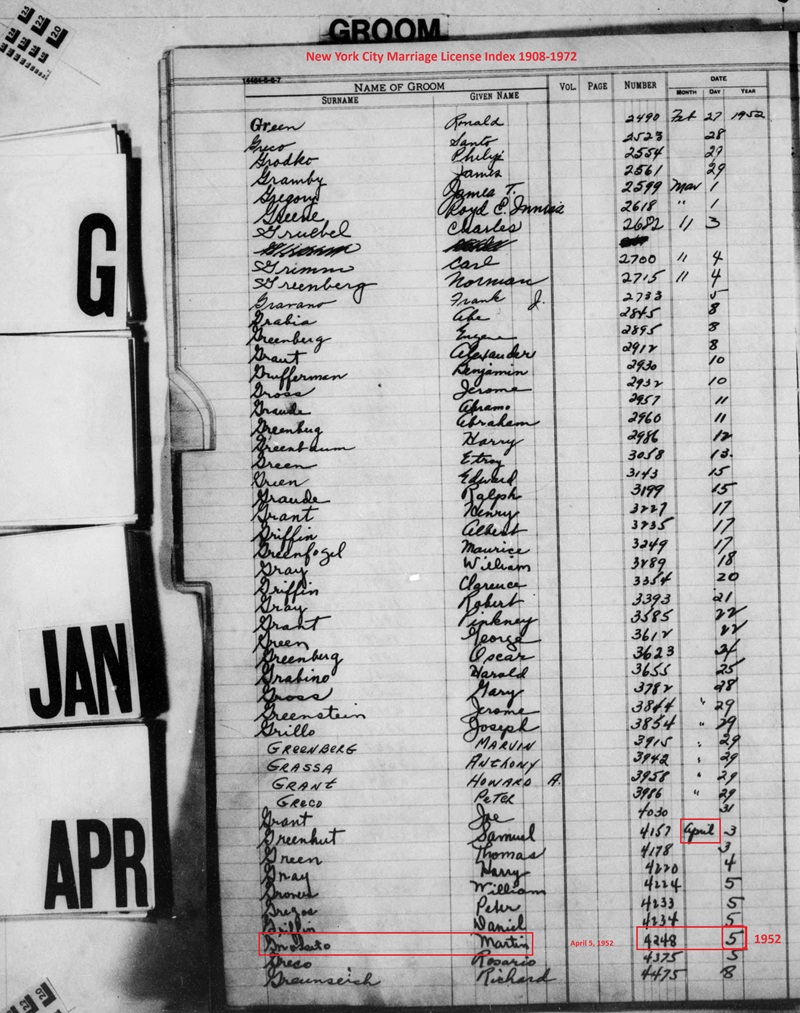 GROOM
New York City Marriage License Index 1908-1972
NAME OF GROOM VOL. PAGE NUMBER DATE
SURNAME GIVEN NAME MONTH DAY YEAR
Green Ronald 2490 Feb 27 1952
Greco Santo 2523 28
Grodko Philip 2554 29
Gramby James 2561 29
Gregory James T. 2599 Mar 1
Greene Royd C. 2618 " 1
Gruebel Charles 2682 11 3
Grimm Carl 2700 11 4
Greenberg Norman 2715 11 4
Gravano Frank J. 2733 5
Grabia Abe 2845 8
Greenberg Eugene 2895 8
Grant Alexander 2912 8
Grufferman Benjamin 2930 10
Gross Jerome 2932 10
Graude Abramo 2957 11
Greenberg Abraham 2960 11
Greenbaum Harry 2986 12
Green 3058 13
Green Edward 3143 15
Graude Ralph 3199 15
Grant Henry 3227 17
Griffin Albert 3235 17
Greenfogel Maurice 3249 17
Gray William 3289 18
Griffin Clarence 3354 20
Gray Robert 3393 21
Grant Pinkney 3585 22
Green George 3612 22
Greenberg Oscar 3623 24
Grabino Harold 3655 25
Gross Gary 3782 28
Greenstein Jerome 3844 " 29
Grillo Joseph 3854 " 29
GREENBERG MARVIN 3915 " 29
GRASSA ANTHONY 3942 " 29
GRANT HOWARD A. 3958 " 29
GRECO PETER 3986 " 29
Grant Joe 4030 31
Greenhut Samuel 4157 April 3
Green Thomas 4178 3
Gray Harry 4220 4
Groves William 4224 5
Peter 4233 5
Griffin Daniel 4234 5
Martin April 5, 1952 4248 5 1952
Greco Rosario 4375 5
Richard 4475 8
G
JAN
APR